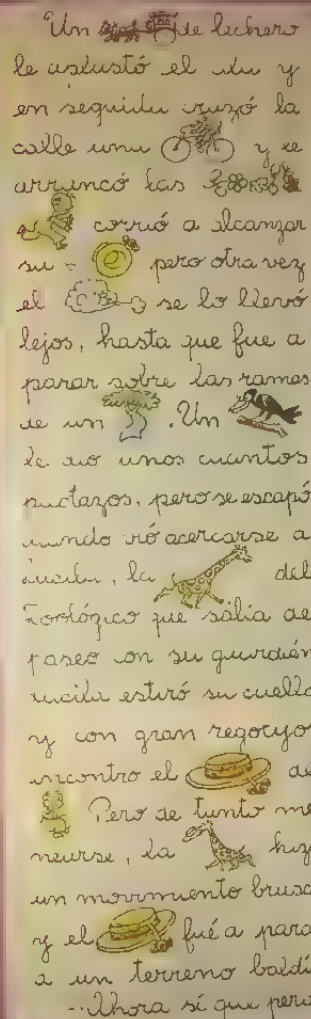 Un de lechero
le asustó el ala y
en seguida cruzó la
calle una y le
arrancó las
corrió a alcanzar
su pero otra vez
el se lo llevó
lejos, hasta que fue a
parar sobre las rames
de un . Un
le dio unos cuantos
picotazos, pero se escapó
cuando vió acercarse a
Lucila, la del
Zoológico que salia de
paseo con su guardián
Lucila estiró su cuello
y con gran regocijo
encontro el de
Pero de tanto me
nearse, la hizo
un movimiento brusc
y el fué a para
a un terreno baldí
--Ahora sí que perd